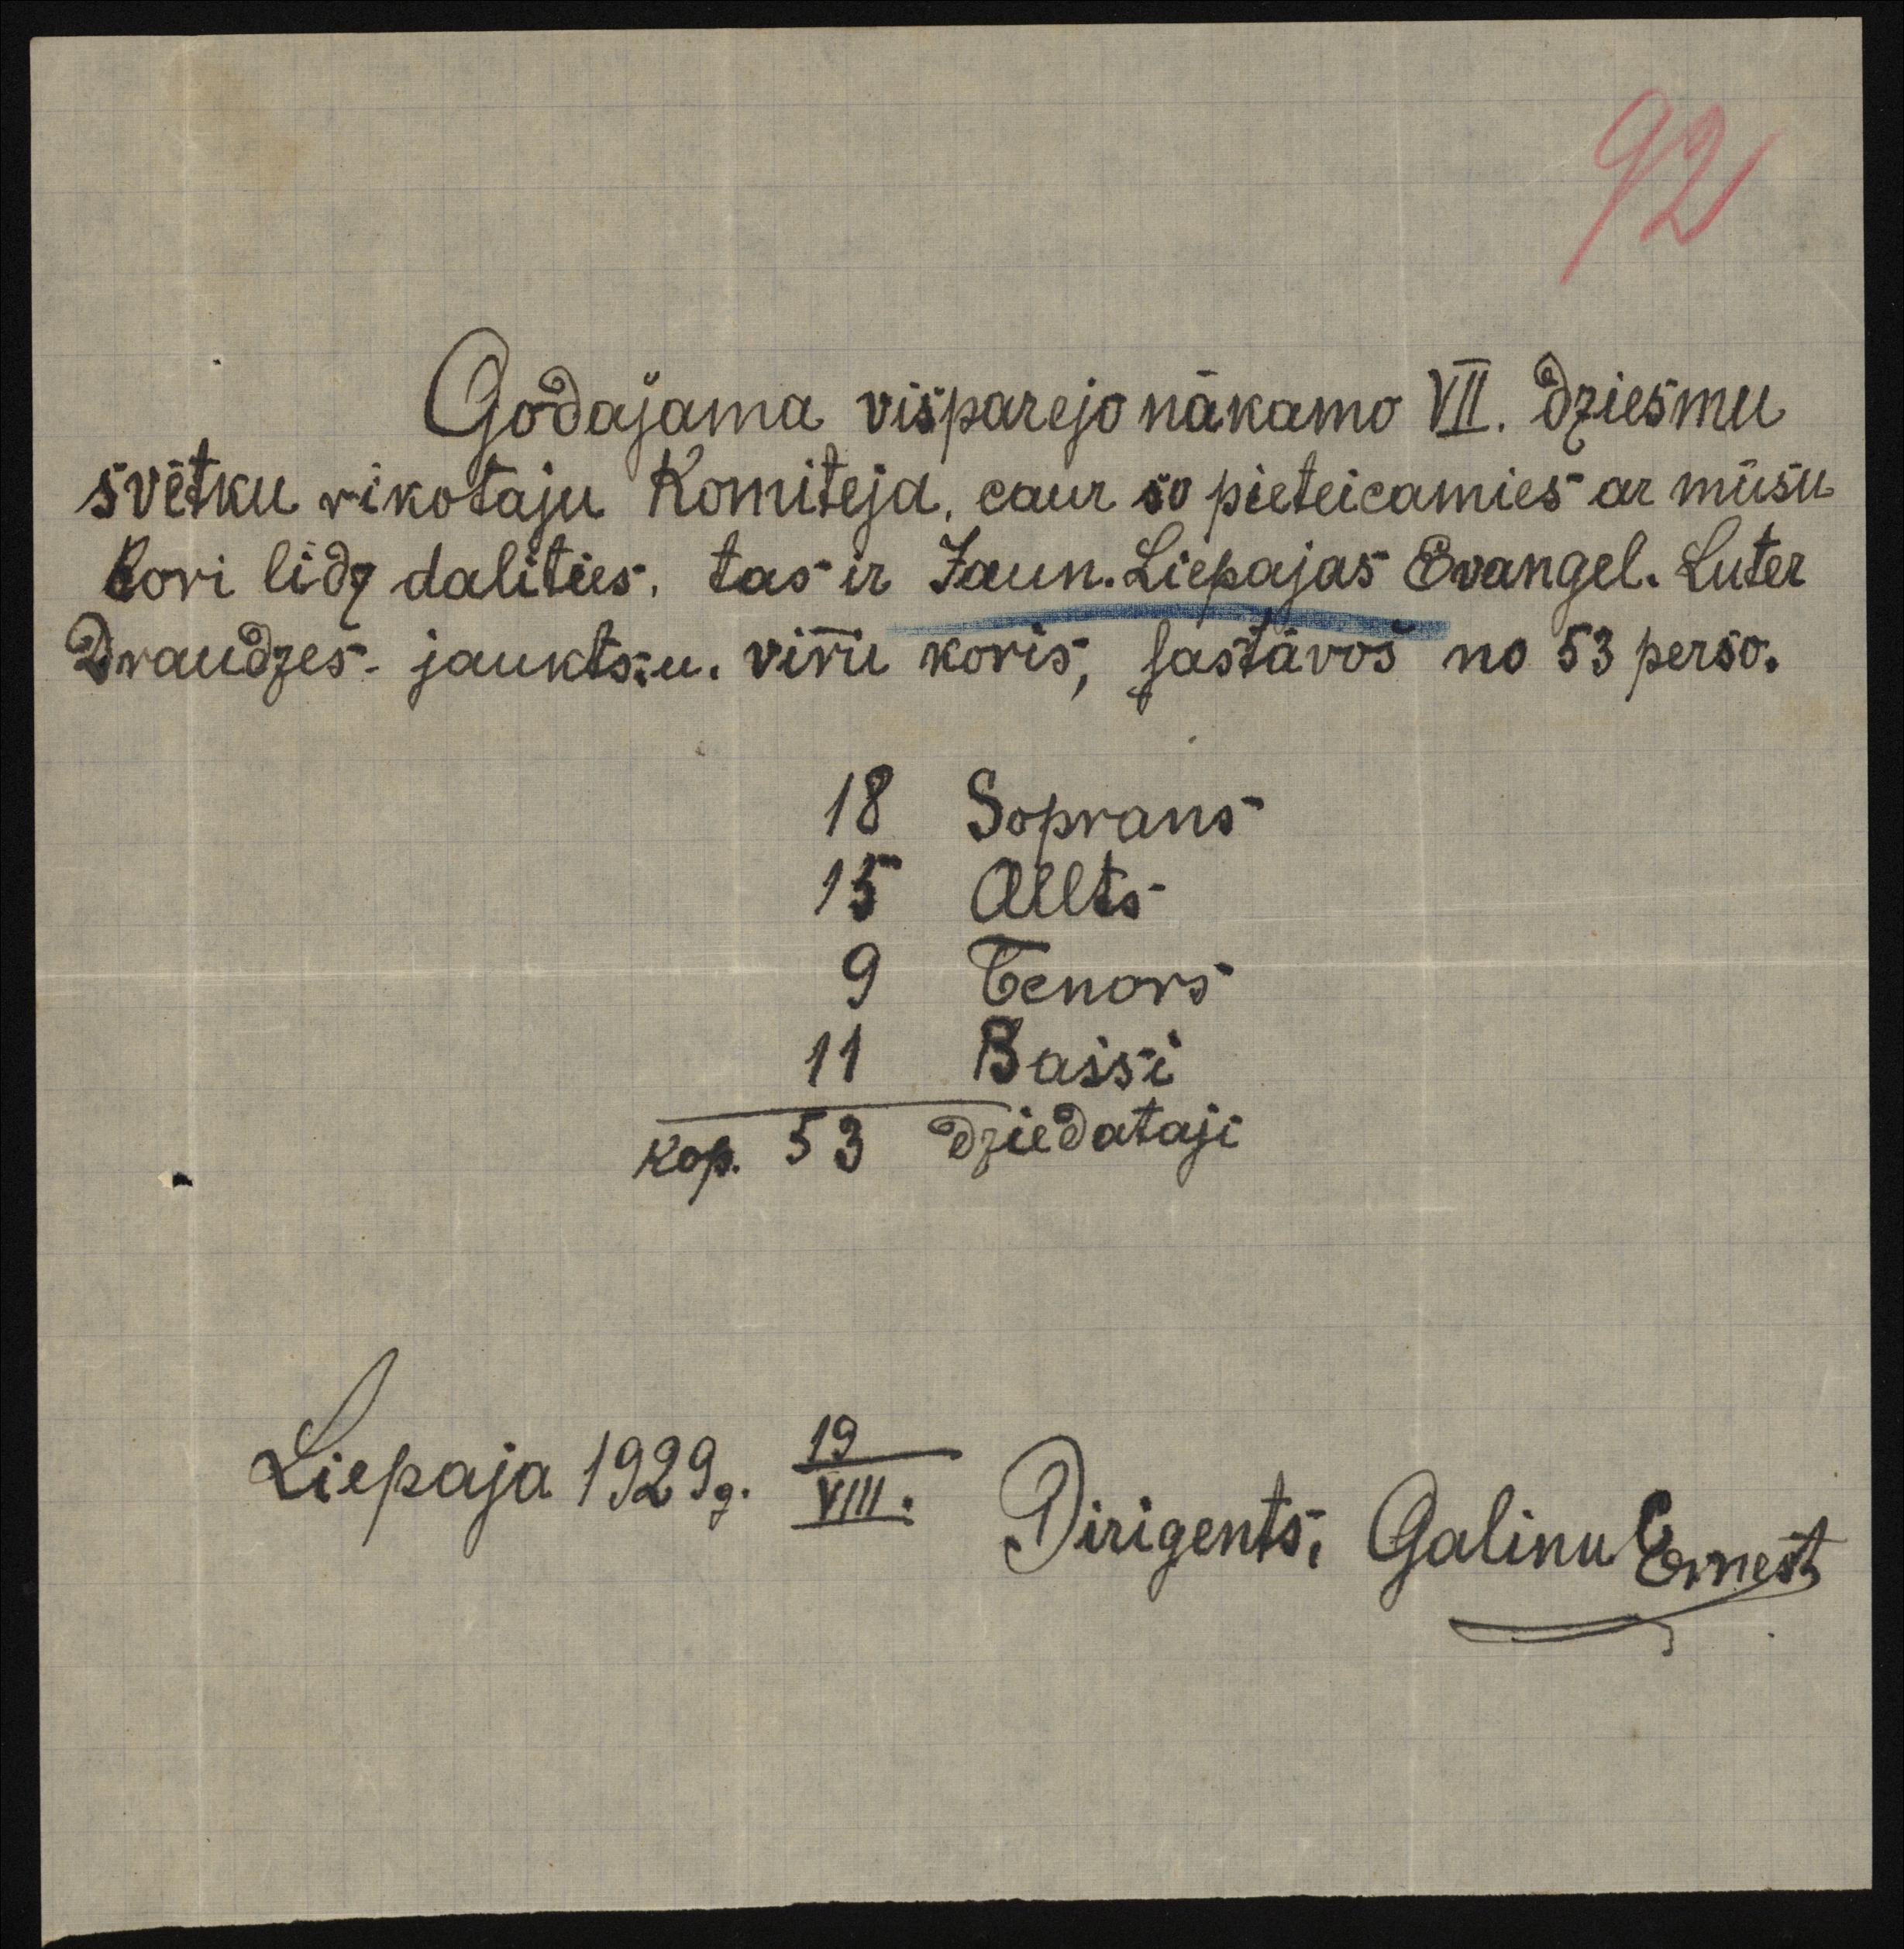 92
Godajama visparejo nākamo VII. dziesmu
svētku rikotaju Komiteja, caur šo pieteicamies ar mūsu
kori lidz dalities, tas ir Jaun. Liepajas Evangel. Luter
Draudzes jaukts u. viru koris, sastāvoš no 53 perso.
18 Soprans
15 Allts
9 Tenors
11 Bassi
kop. 53 dziedataji
Liepaja 1929 g. 19/VIII.
Dirigents, Galinu Ernest